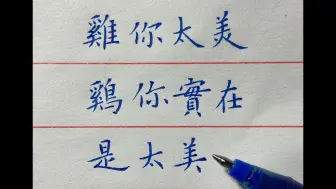 雞你太美
鷄你實在
是太美